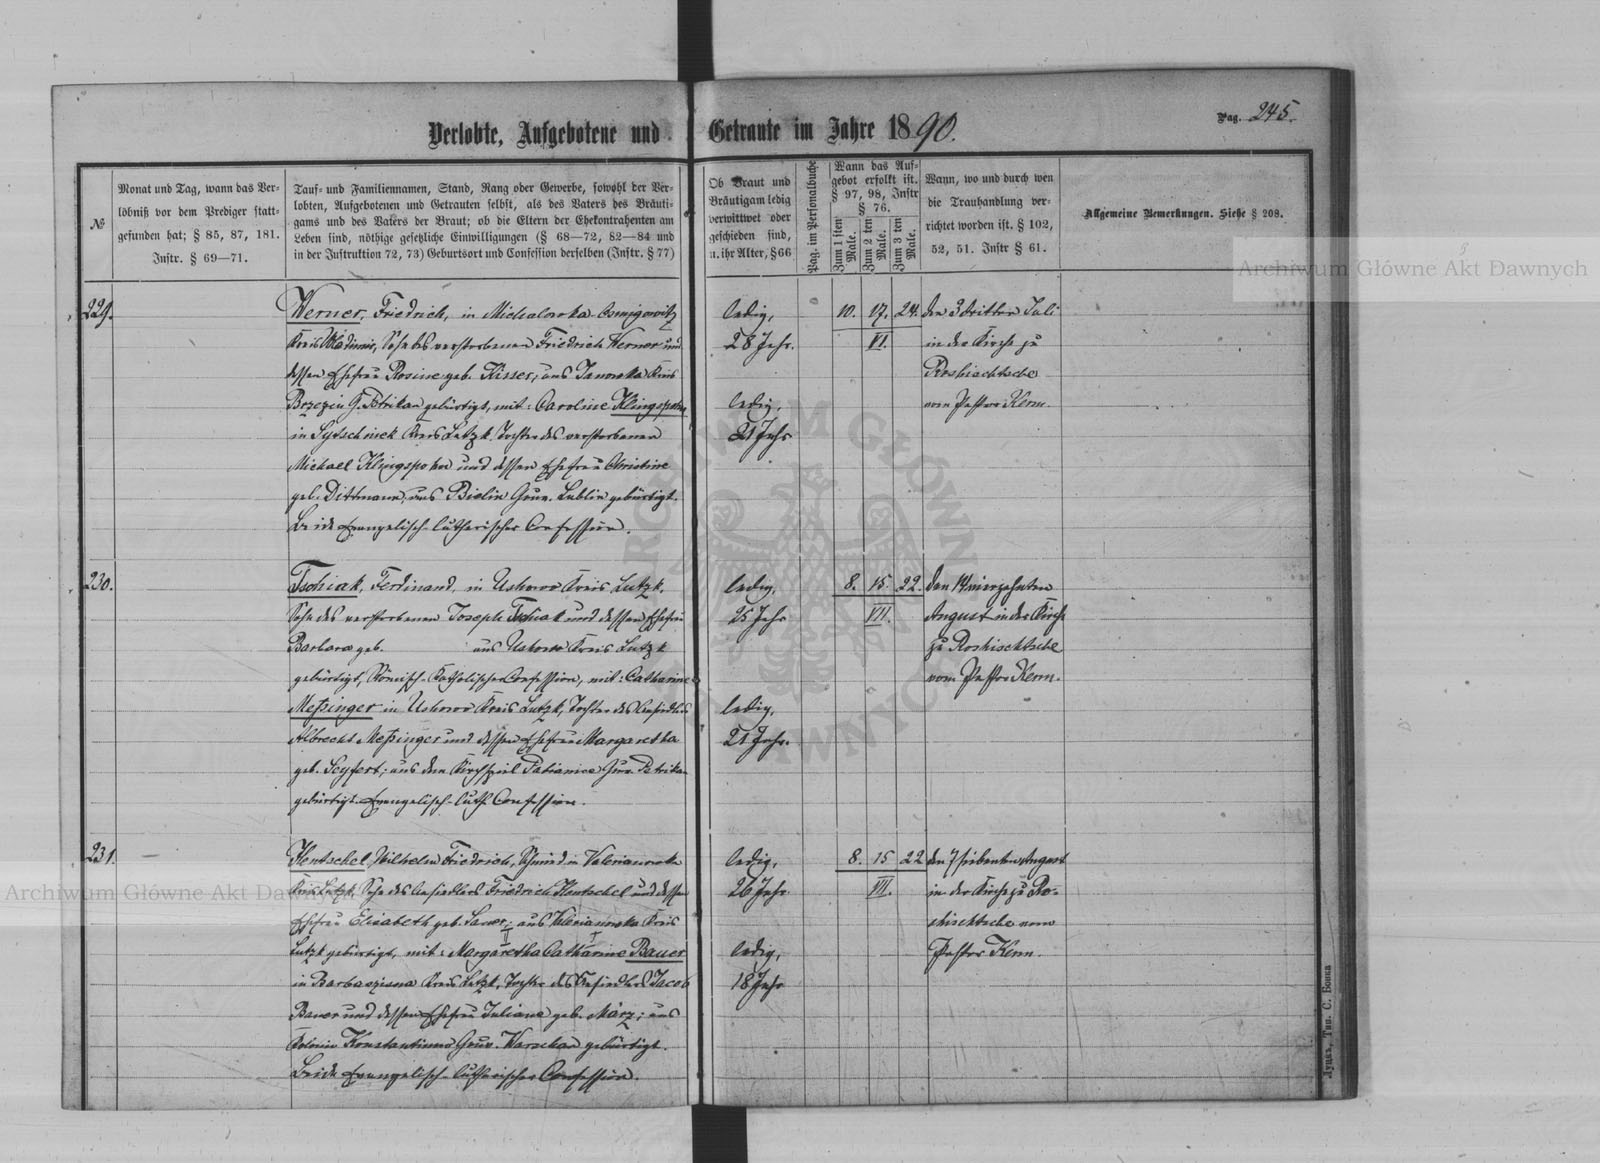 Verlobte, Aufgebotene und Getraute im Jahre 1890.
Pag. 245.
№
Monat und Tag, wann das Ver-
löbniß vor dem Prediger statt-
gefunden hat; § 85, 87, 181.
Instr. § 69—71.
Tauf- und Familiennamen, Stand, Rang oder Gewerbe, sowohl der Ver-
lobten, Aufgebotenen und Getrauten selbst, als des Vaters des Bräuti-
gams und des Vaters der Braut; ob die Eltern der Ehekontrahenten am
Leben sind, nöthige gesetzliche Einwilligungen (§ 68—72, 82—84 und
in der Instruktion 72, 73) Geburtsort und Confession derselben (Instr. § 77)
Ob Braut und
Bräutigam ledig
verwittwet oder
geschieden sind,
u. ihr Alter, § 66
Pag. im Personalbuche
Wann das Auf-
gebot erfolkt ist.
§ 97, 98, Instr
§ 76.
Zum 1 sten Male.
Zum 2 ten Male.
Zum 3 ten Male.
Wann, wo und durch wen
die Trauhandlung ver-
richtet worden ist. § 102,
52, 51. Instr § 61.
Allgemeine Bemerkungen. Siehe § 208.
Archiwum Główne Akt Dawnych
229.
Werner, Friedrich, in Michalowka
Kreis Wladimir, Sohn des verstorbenen Friedrich Werner und
dessen Ehefrau Rosine geb. Kisser, aus Janowka Kreis
Brzezin G. Petrikau gebürtigt, mit: Caroline Klingspohn
in Kreis Lutzk, Tochter des verstorbenen
Michael Klingspohn und dessen Ehefrau Christine
geb. Dittmann, aus Bielin Gouv. Lublin gebürtigt.
Beide Evangelisch-lutherischer Confession.
ledig,
28 Jahr.
ledig,
21 Jahr
10. 17. 24.
VI.
den 3 dritten Juli
in der Kirche zu
Roshischtsche
vom Pastor Kern.
230.
Tschiak, Ferdinand, in Uskowo Kreis Lutzk,
Sohn des verstorbenen Joseph Tschiak und dessen Ehefrau
Barbara geb. aus Uskowo Kreis Lutzk
gebürtigt, Römisch-Katholischer Confession, mit: Catharine
Meßinger in Uskowo Kreis Lutzk, Tochter des Ansiedlers
Albrecht Meßinger und dessen Ehefrau Margaretha
geb. Seyfert; aus dem Kirchspiel Pabianice Guv. Petrikau
gebürtigt. Evangelisch-luth. Confession.
ledig,
25 Jahr
ledig,
21 Jahr.
8. 15. 22.
VII.
den 14 vierzehnten
August in der Kirche
zu Roshischtsche
vom Pastor Kern.
231.
Hentschel, Wilhelm Friedrich, Schmied in Valerianowka
Kreis Lutzk, Sohn des Ansiedlers Friedrich Hentschel und dessen
Ehefrau Elisabeth geb. Sauer; aus Valerianowka Kreis
Lutzk gebürtigt, mit: Margaretha Catharine Bauer
in Kreis Lutzk, Tochter des Ansiedlers Jacob
Bauer und dessen Ehefrau Juliane geb. März; aus
Kolonie Konstantinow Gouv. Warschau gebürtigt.
Beide Evangelisch-lutherischer Confession.
ledig,
26 Jahr
ledig,
18 Jahr
8. 15 22
VII.
den 7 siebenten August
in der Kirche zu Ro-
shischtsche vom
Pastor Kern.
Archiwum Główne Akt Dawnych
ARCHIWUM GŁÓWNE
DAWNYCH
Луцкъ, Тип. С. Бокса